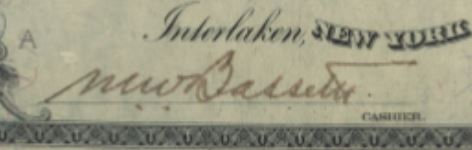 A
Interlaken, NEW YORK
Wm W Bassette.
CASHIER.